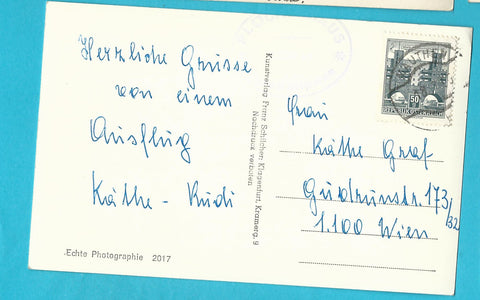 Herzliche Grüsse
von einem
Ausflug
Käthe - Rudi
Echte Photographie 2017
Kunstverlag Franz Schilcher, Klagenfurt, Kramerg. 9
Nachdruck verboten
50
REPUBLIK ÖSTERREICH
Frau
Käthe Graf
Gudrunstr. 173/32
1.100 Wien